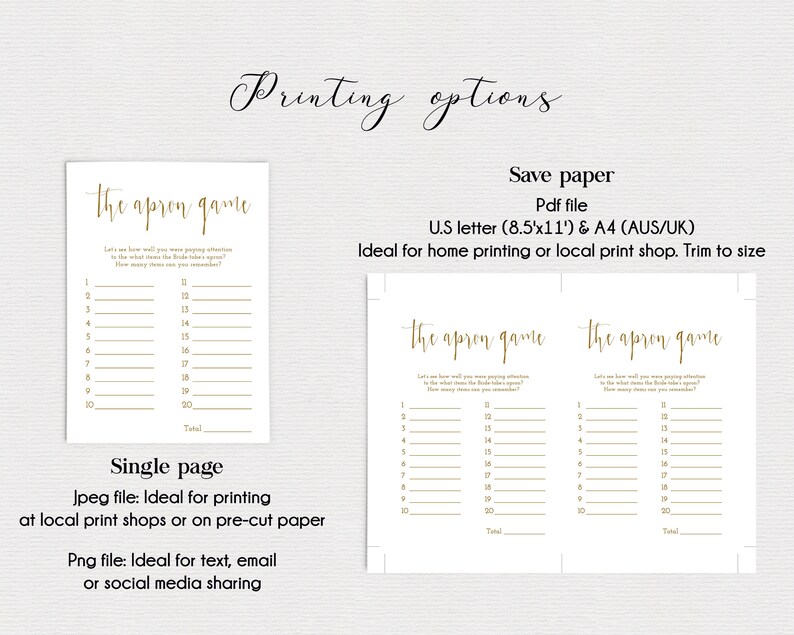 Printing options
the apron game
Let's see how well you were paying attention
to the what items the Bride-tobe's apron?
How many items can you remember?
1 11
2 12
3 13
4 14
5 15
6 16
7 17
8 18
9 19
10 20
Total
Single page
Jpeg file: Ideal for printing
at local print shops or on pre-cut paper
Png file: Ideal for text, email
or social media sharing
Save paper
Pdf file
U.S letter (8.5'x11') & A4 (AUS/UK)
Ideal for home printing or local print shop. Trim to size
the apron game
Let's see how well you were paying attention
to the what items the Bride-tobe's apron?
How many items can you remember?
1 11
2 12
3 13
4 14
5 15
6 16
7 17
8 18
9 19
10 20
Total
the apron game
Let's see how well you were paying attention
to the what items the Bride-tobe's apron?
How many items can you remember?
1 11
2 12
3 13
4 14
5 15
6 16
7 17
8 18
9 19
10 20
Total